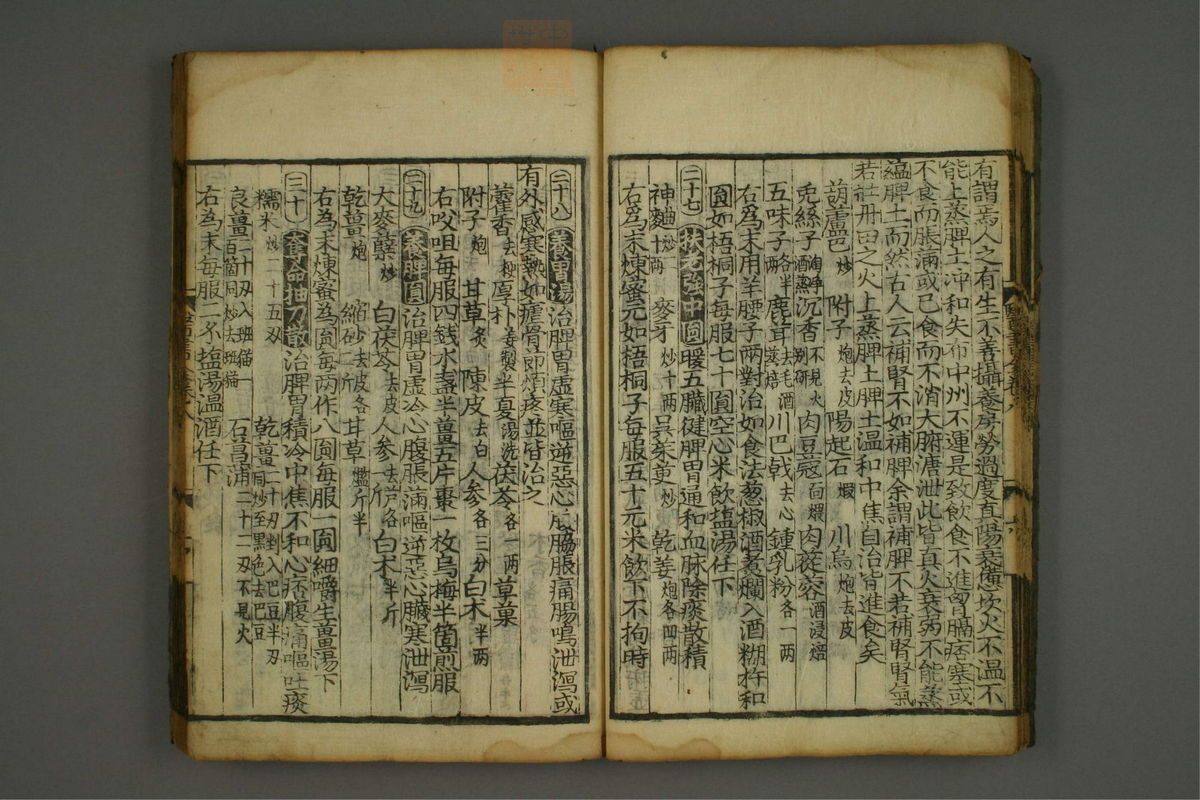 有謂焉人之有生不善攝養房勞過度真陽衰憊坎火不温不
能上蒸脾土冲和失布中州不運是致飲食不進胷膈痞塞或
不食而脹滿或已食而不消大腑溏泄此皆真火衰弱不能蒸
藴脾土而然古人云補腎不如補脾余謂補脾不若補腎腎氣
若壯丹田之火上蒸脾土脾土温和中焦自治皆進食矣
葫蘆巴炒 附子炮去皮 陽起石煆 川烏炮去皮
兎絲子淘淨酒蒸 沉香不見火别研 肉豆蔻面煨 肉蓯蓉酒浸焙
五味子各半兩 鹿茸去毛酒蒸焙 川巴戟去心 鍾乳粉各一兩
右為末用羊腰子兩對治如食法葱椒酒煮爛入酒糊杵和
圓如梧桐子每服七十圓空心米飲塩湯任下
二十七 扶老強中圓 暖五臟健脾胃通和血脉除痰散積
神麯炒十兩 麥牙炒十兩 吳茱萸炒 乾姜炮各四兩
右為末煉蜜元如梧桐子每服五十元米飲下不拘時
二十八 養胃湯 治脾胃虚寒嘔逆惡心脹痛腸鳴泄瀉或
有外感寒熱如瘧骨節煩疼並皆治之
藿香去梗 厚朴姜製 半夏湯洗 茯苓各一兩 草菓
附子炮 甘草炙 陳皮去白 人参各三分 白术半兩
右㕮咀每服四錢水盞半薑五片棗一枚烏梅半箇煎服
二十九 養脾圓 治脾胃虚冷心腹脹滿嘔逆惡心臟寒泄瀉
大麥蘖炒 白茯苓去皮 人参去芦各一斤 白术半斤
乾薑炮 縮砂去皮各二斤 甘草爁斤半
右為末煉蜜為圓每兩作八圓每服一圓細嚼生薑湯下
三十 奪命抽刀散 治脾胃積冷中焦不和心腹痛嘔吐痰
糯米炒二十五刄 乾薑二十刄剉入巴豆半刄同炒至黑色去巴豆
良薑二十刄入班猫一百箇同炒去班猫 石菖蒲二十二刄不見火
右為末每服二䥘塩湯温酒任下